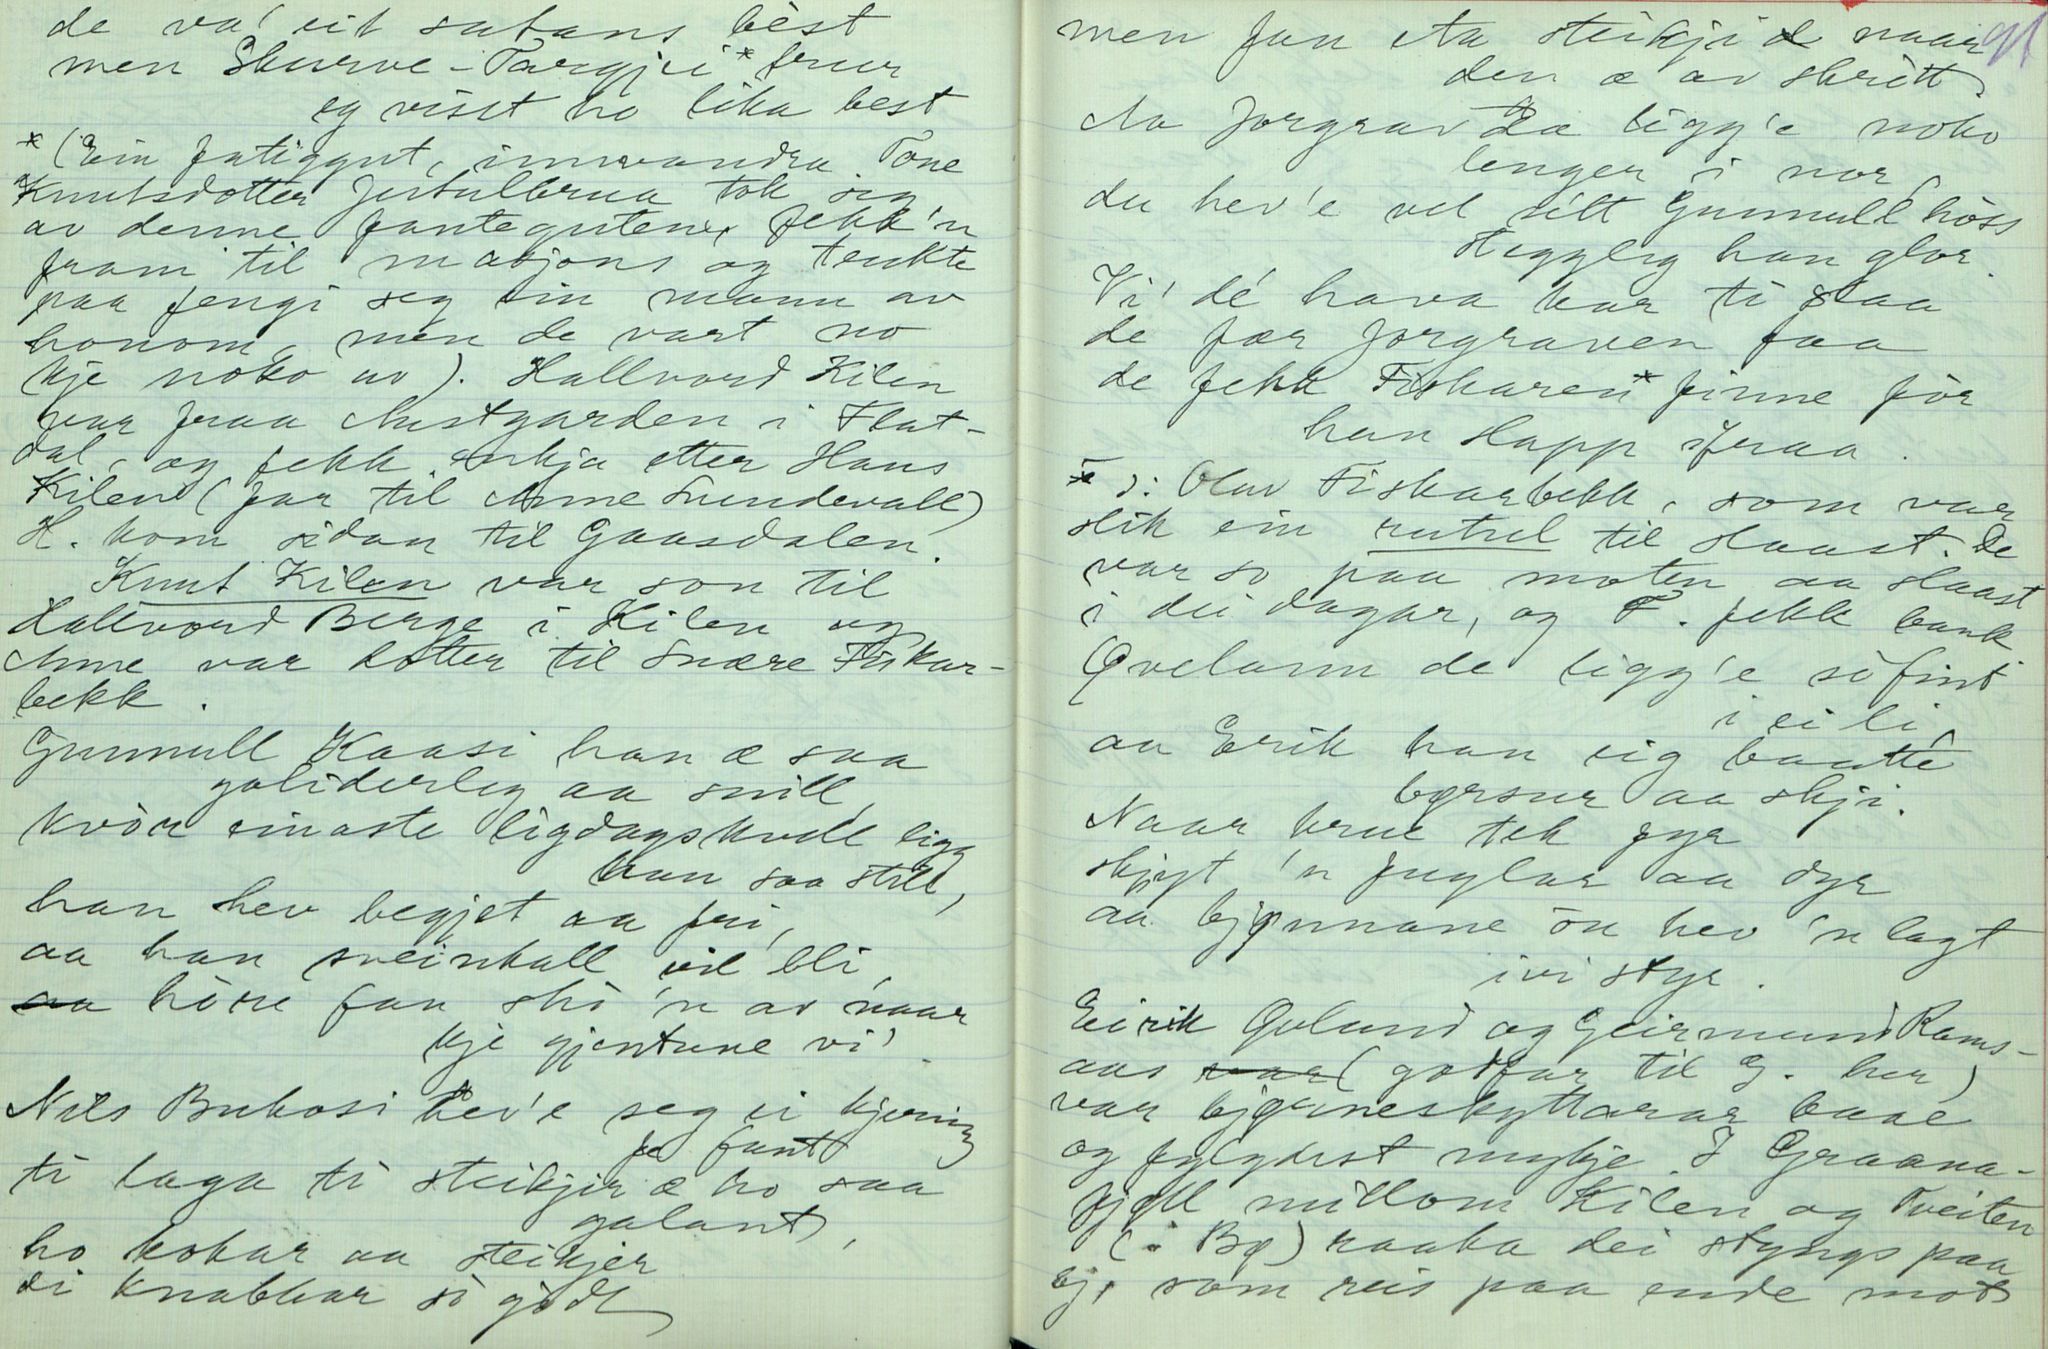 de va' eit satans bèst
men Skurve-Targjei* trur
eg visst ho lika best
* (Ein fatiggut, innvandra. Tone
Knutsdotter Jutulbrua tok seg
av denne fanteguten, fekk 'n
fram til masjons og tenkte
paa fengi seg ein mann av
honom, men de vart no
kje noko av). Hallvord Kilen
var fraa Austgarden i Flat-
dal, og fekk enkja etter Hans
Kilen (far til Anne Sundevall)
H. kom sidan til Gaasdalen.
Knut Kilen var son til
Hallvord Berge i Kilen og
Anne var dotter til Snære Fiskar-
bekk.
Gunnull Kaasi han æ saa
goliderleg aa snill,
kvòr einaste ligdagskvell ligg
han saa still,
han hev begjet aa fri,
aa han sveinkall vil bli,
aa hòsse fan ska 'n av naar
kje gjentune vi'.
Nils Bukasi hev'e seg ei kjering
fe fant
ti laga ti steikjer æ ho saa
galant,
ho kokar aa steikjer
di knabbar sò gòdt
men fan ta steikji d naar 91
den æ av skrótt.
Aa Jorgrav Da ligg'e noko
lenger i nor,
du hev'e vel sètt Gunnull hòss
steggleg han glor.
Vi' dé hava kar ti slaa
de fær Jorgraven faa
de fekk Fiskaren* finne fòr
han slapp ifraa.
* ɔ: Olav Fiskarbekk, som var
slik ein rutsel til slaast. De
var so paa moten aa slaast
i dei dagar, og F. fekk bank
Øvelann de ligg'e sò fint
i ei li,
aa Erik han eig baatte
børsur aa skji.
Naar krut tek fyr
skjyt 'n fuglar aa dyr
aa bjønnane òn hev 'n lagt
ivi styr.
Eirik Øvland og Geirmund Rams-
aas var (godfar til G. her)
var bjørneskyttarar baae
og fylgdest mykje. I Graana-
fjøll millom Kilen og Tveiten
(i Bø) raaka dei styngs paa
bj. som reis paa ende mot